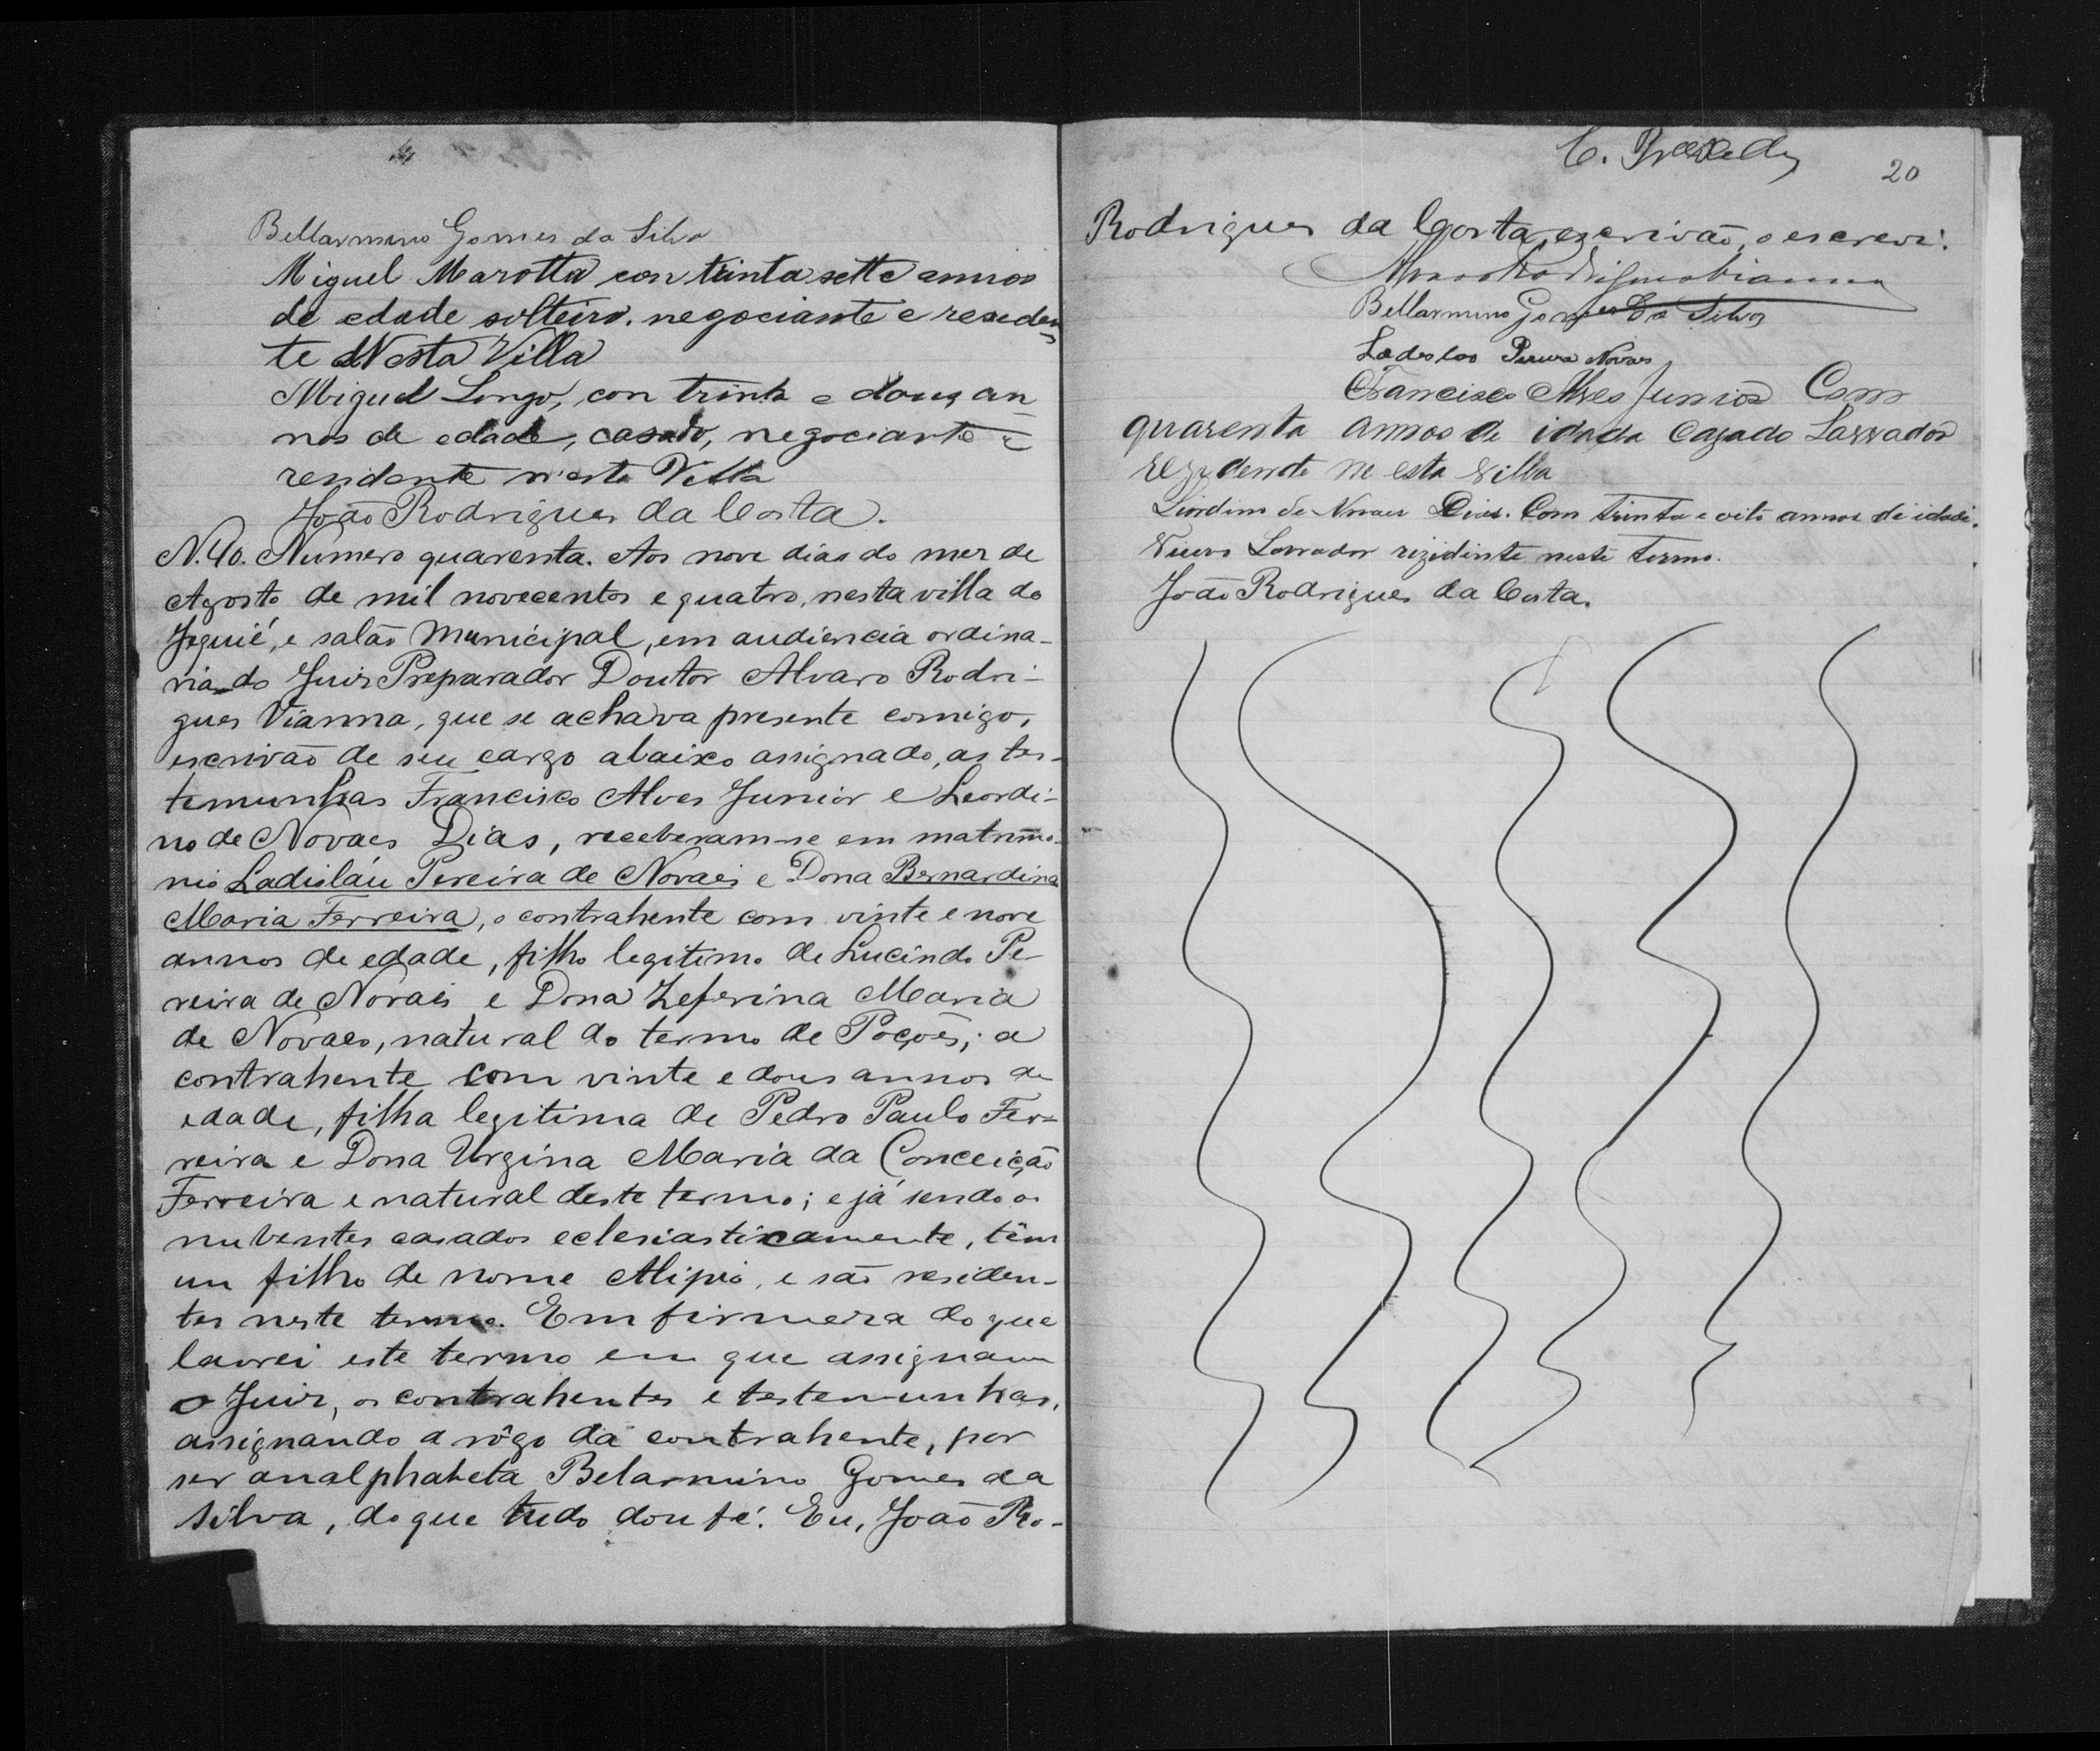 Bellarmino Gomes da Silva
Miguel Marotta con trinta sette annos
de edade solteiro, negociante e reseden
te Nesta Villa
Miguel Longo, con trinta e dous an
nos de edade, casado, negociante e
residente n'esta Villa
João Rodrigues da Costa.
N. 40. Numero quarenta. Aos nove dias do mez de
Agosto de mil novecentos e quatro, nesta villa do
Jequié, e salão Municipal, em audiencia ordina-
ria do Juiz Preparador Doutor Alvaro Rodri-
gues Vianna, que se achava presente comigo,
escrivão de seu cargo abaixo assignado, as tes-
temunhas Francisco Alves Junior e Leordi-
no de Novaes Dias, receberam-se em matrimo-
nio Ladisláu Pereira de Novaes e Dona Bernardina
Maria Ferreira, o contrahente com vinte e nove
annos de edade, filho legitimo de Lucindo Pe-
reira de Novais e Dona Zeferina Maria
de Novaes, natural do termo de Poções; a
contrahente com vinte e dous annos de
edade, filha legitima de Pedro Paulo Fer-
reira e Dona Urgina Maria da Conceição
Ferreira e natural deste termo; e já sendo os
nubentes casados eclesiasticamente, têm
um filho de nome Alipio, e são residen-
tes neste termo. Em firmeza do que
lavrei este termo em que assignam
o Juiz, os contrahentes e testemunhas,
assignando a rôgo da contrahente, por
ser analphabeta Belarmino Gomes da
Silva, do que tudo dou fé. Eu, João Ro-
20
Rodrigues da Costa, escrivão, o escrevi.
Alvaro Rodrigues Vianna
Bellarmino Gomes da Silva
Ladeslao Pereira Novaes
Francisco Alves Junior Com
quarenta annos de idada Cazado Lavrador
rezidente ne esta Villa
Liordino de Novaes Dias. Com trinta e oito annos di idade.
Viuvo Lavrador rizidinte neste Termo.
João Rodrigues da Costa.